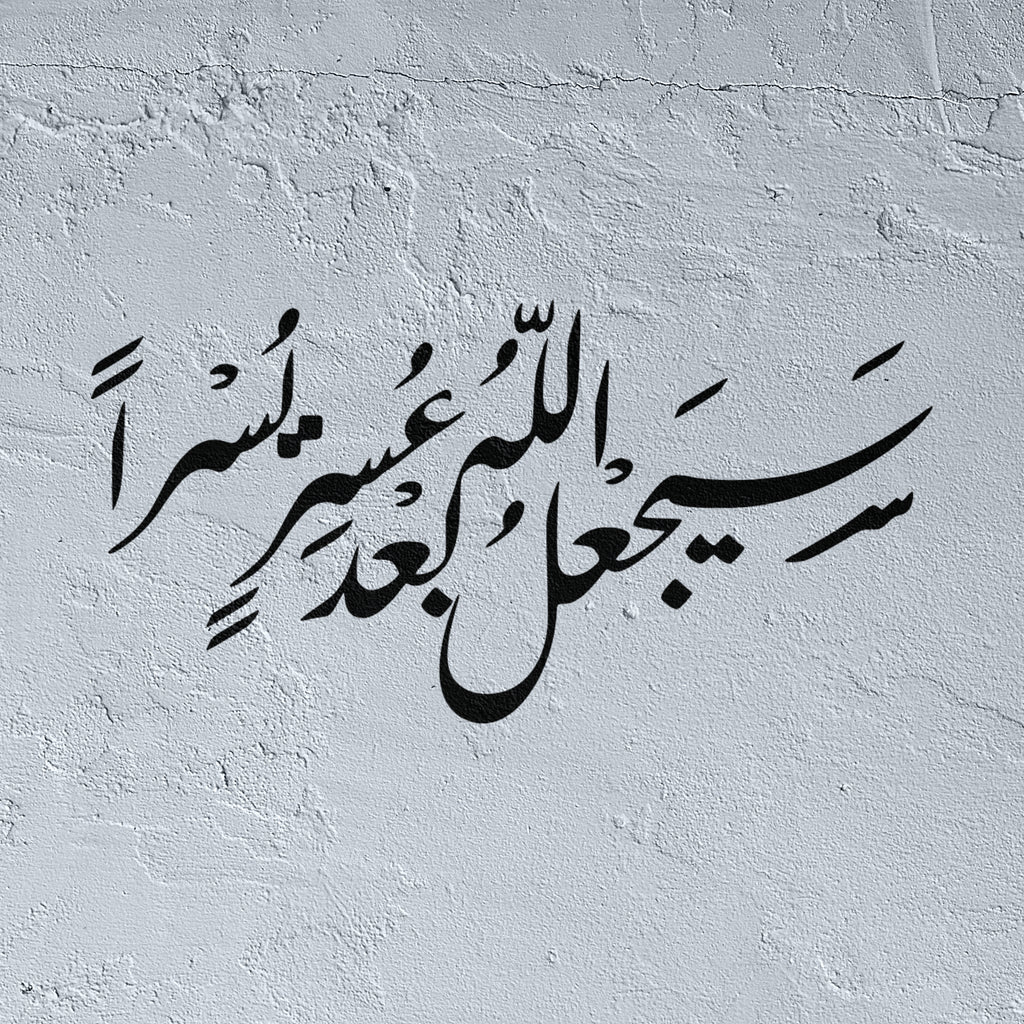 سَيَجْعَلُ اللّهُ بَعْدَ عُسْرٍ يُسْراً